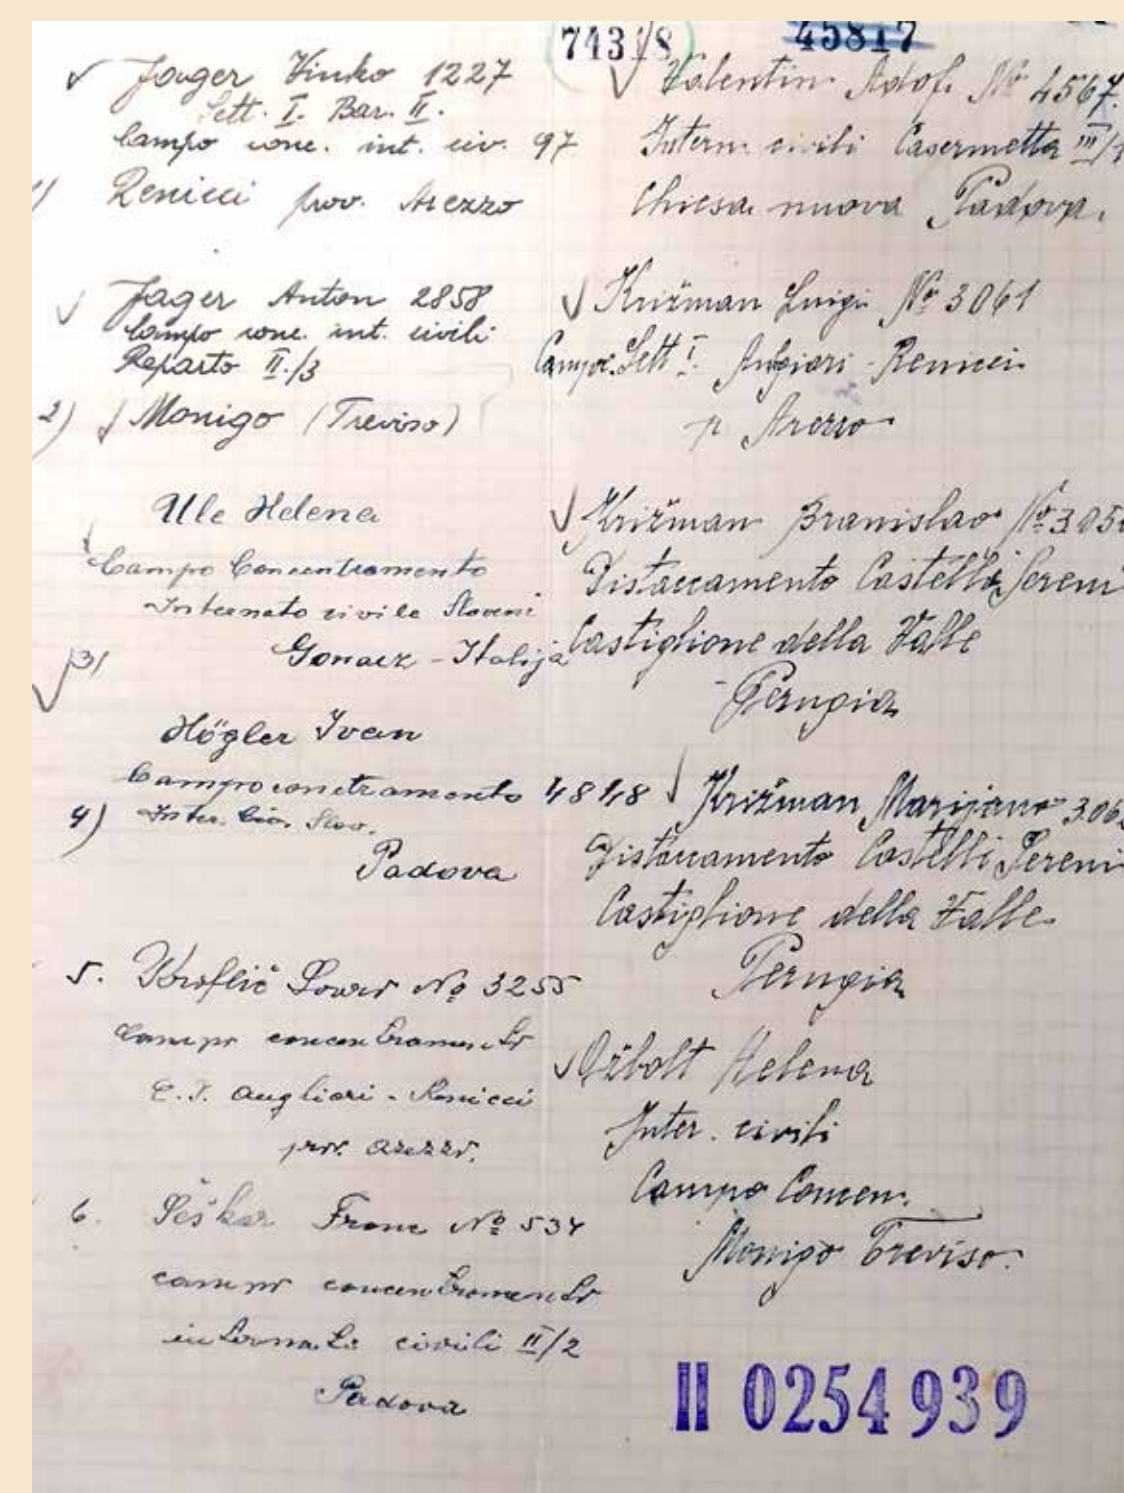 74318
45817
Jager Vinko 1227
Sett. I. Bar. II.
Campo conc. int. civ. 97
1) Renicci prov. Arezzo
Jager Anton 2858
Campo conc. int. civili
Reparto II./3
2) Monigo (Treviso)
Ule Helena
Campo Concentramento
Internato civile Sloveni
Gonacz - Italija
3)
Högler Ivan
Campo 4848
4) Inter. Civ. Slov.
Padova
5. No 3255
campo concentramento
C. I. Angliari - Renicci
prov. Arezzo.
6. Peškar Franc No 534
campo concentramento
internato civili II/2
Padova
Valentin Adolf. No 4567.
Intern. civili Casermetta III/1
Chiesa nuova Padova.
Križman Luigi No 3061
Campo. Sett I. Angiari - Renicci
p. Arezzo
Križman Branislav No 305
Distaccamento Castelli Sereni
Castiglione della Valle
- Perugia
Križman Marijano 306
Distaccamento Castelli Sereni
Castiglione della Valle
Perugia
Ožbolt Helena
Inter. civili
Campo Concen.
Monigo Treviso.
II 0254939